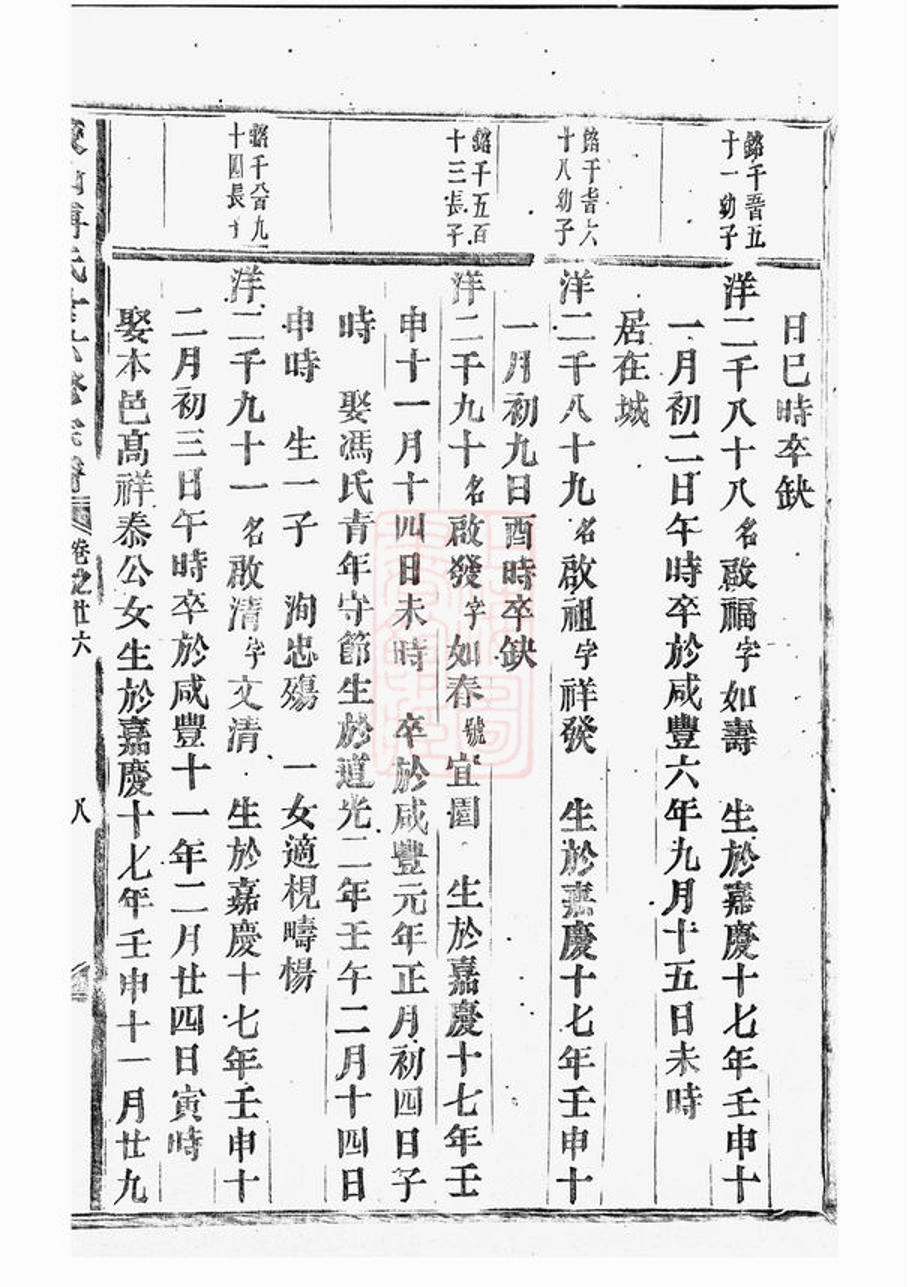 日巳時卒缺
十一幼子
洋二千八十八名啟福字如壽　生於嘉慶十七年壬申十
一月初二日午時卒於咸豐六年九月十五日未時
居在城
十八幼子
洋二千八十九名啟祖字祥發　生於嘉慶十七年壬申十
一月初九日酉時卒缺
銘千五百
十三長子
洋二千九十名啟發字如春號宜園　生於嘉慶十七年壬
申十一月十四日未時　卒於咸豐元年正月初四日子
時　娶馮氏青年守節生於道光二年壬午二月十四日
申時　生一子　洵忠殤　一女適梘疇楊
十四長子
洋二千九十一名啟清字文清　生於嘉慶十七年壬申十
二月初三日午時卒於咸豐十一年二月廿四日寅時
娶本邑高祥泰公女生於嘉慶十七年壬申十一月廿九
卷之廿六
八